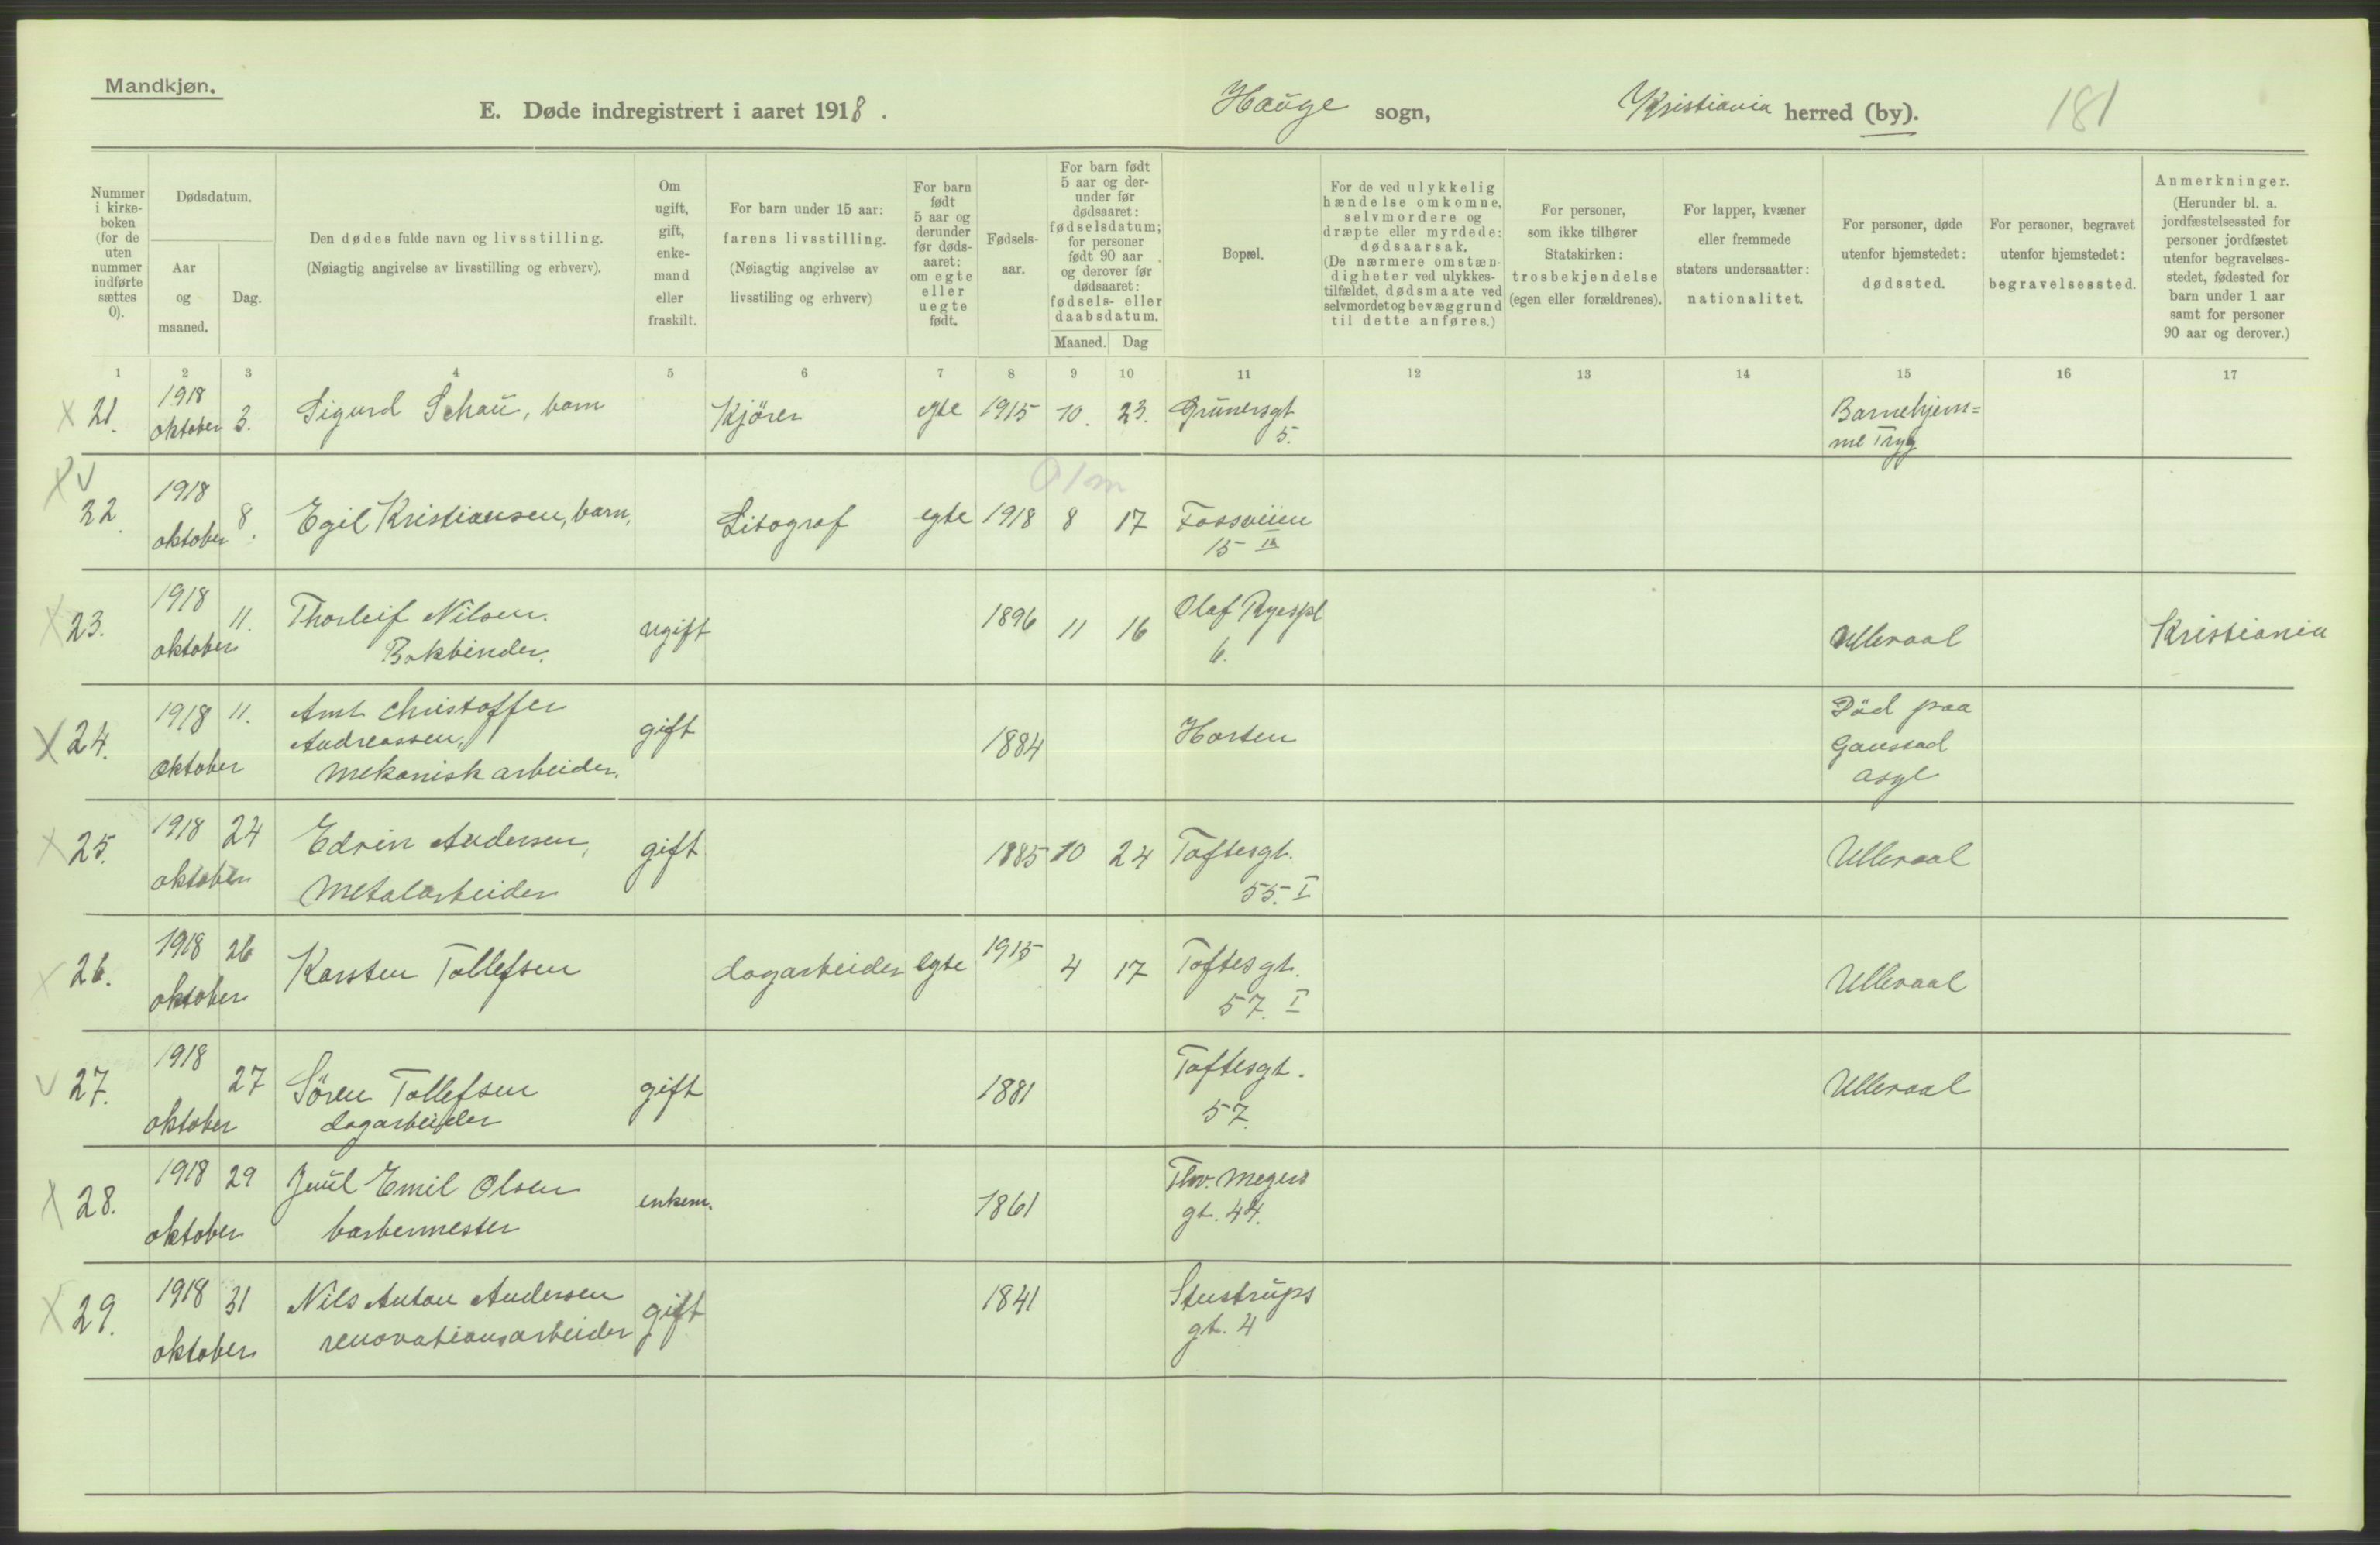 Mandkjøn.
E. Døde indregistrert i aaret 1918.
Hauge sogn,
Kristiania herred (by).
181
Nummer
i kirke-
boken
(for de
uten
nummer
indførte
sættes
0).
Dødsdatum.
Aar
og
maaned.
Dag.
Den dødes fulde navn og livsstilling.
(Nøiagtig angivelse av livsstilling og erhverv).
Om
ugift,
gift,
enke-
mand
eller
fraskilt.
For barn under 15 aar:
farens livsstilling.
(Nøiagtig angivelse av
livsstiling og erhverv)
For barn
født
5 aar og
derunder
før døds-
aaret:
om egte
eller
uegte
født.
Fødsels-
aar.
For barn født
5 aar og der-
under før
dødsaaret:
fødselsdatum;
for personer
født 90 aar
og derover før
dødsaaret:
fødsels- eller
daabsdatum.
Maaned. Dag
Bopæl.
For de ved ulykkelig
hændelse omkomne,
selvmordere og
dræpte eller myrdede:
dødsaarsak.
(De nærmere omstæn-
digheter ved ulykkes-
tilfældet, dødsmaate ved
selvmordet og bevæggrund
til dette anføres.)
For personer,
som ikke tilhører
Statskirken:
trosbekjendelse
(egen eller forældrenes).
For lapper, kvæner
eller fremmede
staters undersaatter:
nationalitet.
For personer, døde
utenfor hjemstedet:
dødssted.
For personer, begravet
utenfor hjemstedet:
begravelsessted.
Anmerkninger.
(Herunder bl. a.
jordfæstelsessted for
personer jordfæstet
utenfor begravelses-
stedet, fødested for
barn under 1 aar
samt for personer
90 aar og derover.)
1 2 3 4 5 6 7 8 9 10 11 12 13 14 15 16 17
X 21. 1918 oktober 3. Sigurd Schau, barn Kjører egte 1915 10. 23. Grünersgt
5.
Barnehjem=
me Tryg
0 1 m
X V 22. 1918 oktober 8. Egil Kristiansen, barn, Litograf egte 1918 8 17 Fossveien
15
X 23. 1918 oktober 11. Thorleif Nilsen.
Bokbinder. ugift 1896 11 16 Olaf Ryespl
6.
Ulleraal Kristiania
X 24. 1918 oktober 11. Arnt Christoffer
Andreassen,
mekanisk arbeider. gift 1884 Horten
Död paa
Gaustad
asyl
X 25. 1918 oktober 24 Edvin Andersen,
Metalarbeider gift 1885 10 24 Toftesgt.
55. I
Ulleraal
X 26. 1918 oktober 26 Karsten Tollefsen dagarbeider egte 1915 4 17 Toftesgt.
57. I
Ulleraal
V 27. 1918 oktober 27 Sören Tollefsen
dagarbeider gift 1881 Toftesgt.
57.
Ulleraal
X 28. 1918 oktober 29 Juul Emil Olsen
barbermester enkem. 1861 Thv. Meyers
gt. 44.
X 29. 1918 oktober 31 Nils Anton Andersen
renovationsarbeider gift 1841 Steenstrups
gt. 4